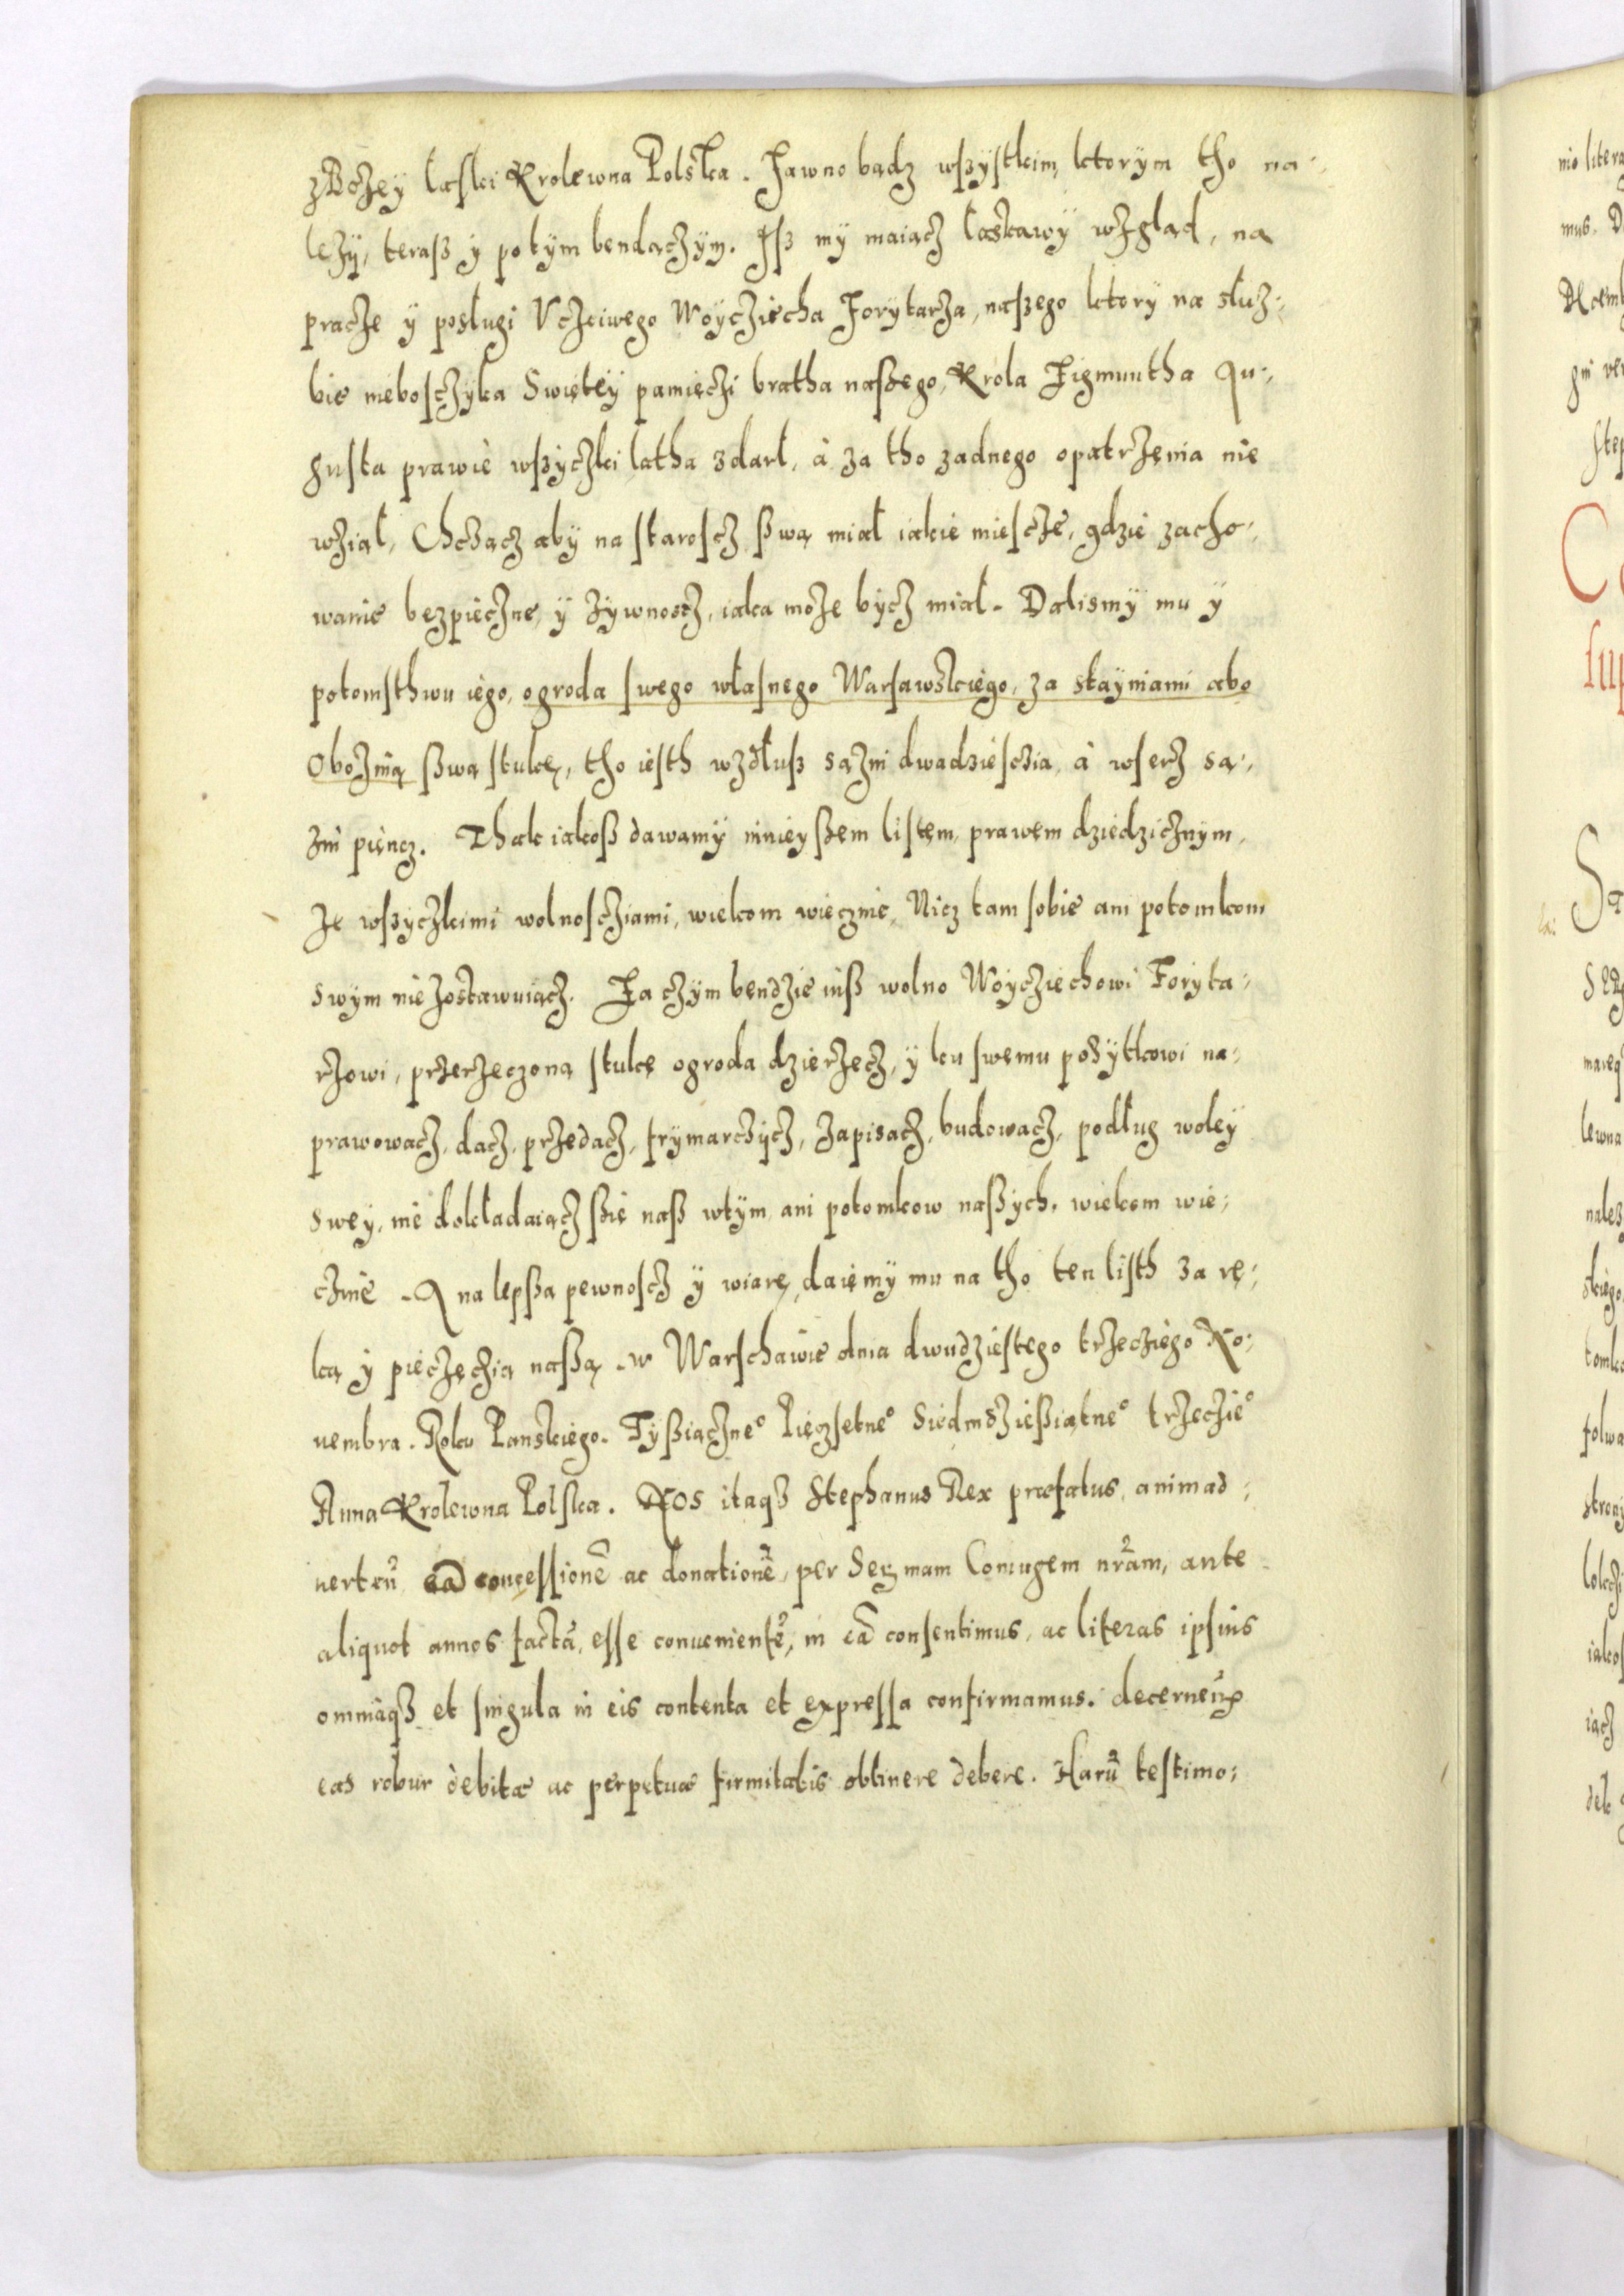 z Bożey łaski Krolewna Polska. Jawno bądz wßystkim, ktorym tho na⸗
leży, teraß ÿ potÿm bendączÿm. Iß mÿ maiącz łaskawÿ wżgląd, na
pracże ÿ posługi Vcżciwego Woÿcżiecha Forytarża, naßego ktorÿ na służ⸗
bie nieboscżyka Swiętęÿ pamięcżi bratha naßego, Krola Zigmuntha Au⸗
gusta prawie wßÿcżki latha zdarł, à za tho zadnego opatrżenia nie
wżiął, Chcżącz abÿ na staroscż ßwą miał iakie miescże, gdzie zacho⸗
wanie bezpiecżne, ÿ żÿwnoscż, iaka może bÿcż miał. Dalismÿ mu ÿ
potomsthwu iego, ogroda swego własnego Warsawskiego, za staÿniami abo
Obożnią ßwą stukę, tho iesth wzdłuß sążni dwadziescżia, à wserż są⸗
żni pięncz. Thak iakoß dawamÿ ninieÿßem listem, prawem dziedzicżnÿm,
że wßÿcżkimi wolnoscżiami, wiekom wiecznie, Nicz tam sobie ani potomkom
swÿm nie żostawuiącż. Za cżÿm bendżie iuß wolno Woÿcżiechowi Foryta⸗
rżowi, prżerżeczoną stukę ogroda dzierżecż, ÿ ku swemu pożÿtkowi na⸗
prawowacż, dacż, prżedacż, frÿmarcżÿcż, żapisacż, budowacż, podług woleÿ
sweÿ, nie dokładaiącż ßię naß wtÿm, ani potomkow naßÿch, wiekom wie⸗
cżnie. A na lepßa pewnoscż ÿ wiarę, daiemÿ mu na tho ten listh za rę⸗
ką ÿ piecżęcżią naßą. w Warschawie dnia dwudżiestego trżecżiego No⸗
uembra. Roku Panskiego. Tÿßiącżneº Pięczsetneº Siedmdżießiątneº trżecżieº
Anna Krolewna Polska. Nos itaqꝫ Stephanus Rex præfatus, animad⸗
uerteñ eã concessionẽ ac donationẽ, per Serꝫmam Coniugem nr̃am, ante
aliquot annos factã, esse conuenientẽ, in eã consentimus, ac literas ipsius
omniaqꝫ et singula in eis contenta et expressa confirmamus. decerneñ
eas robur debitæ ac perpetuæ firmitatis obtinere debere. Harũ testimo⸗